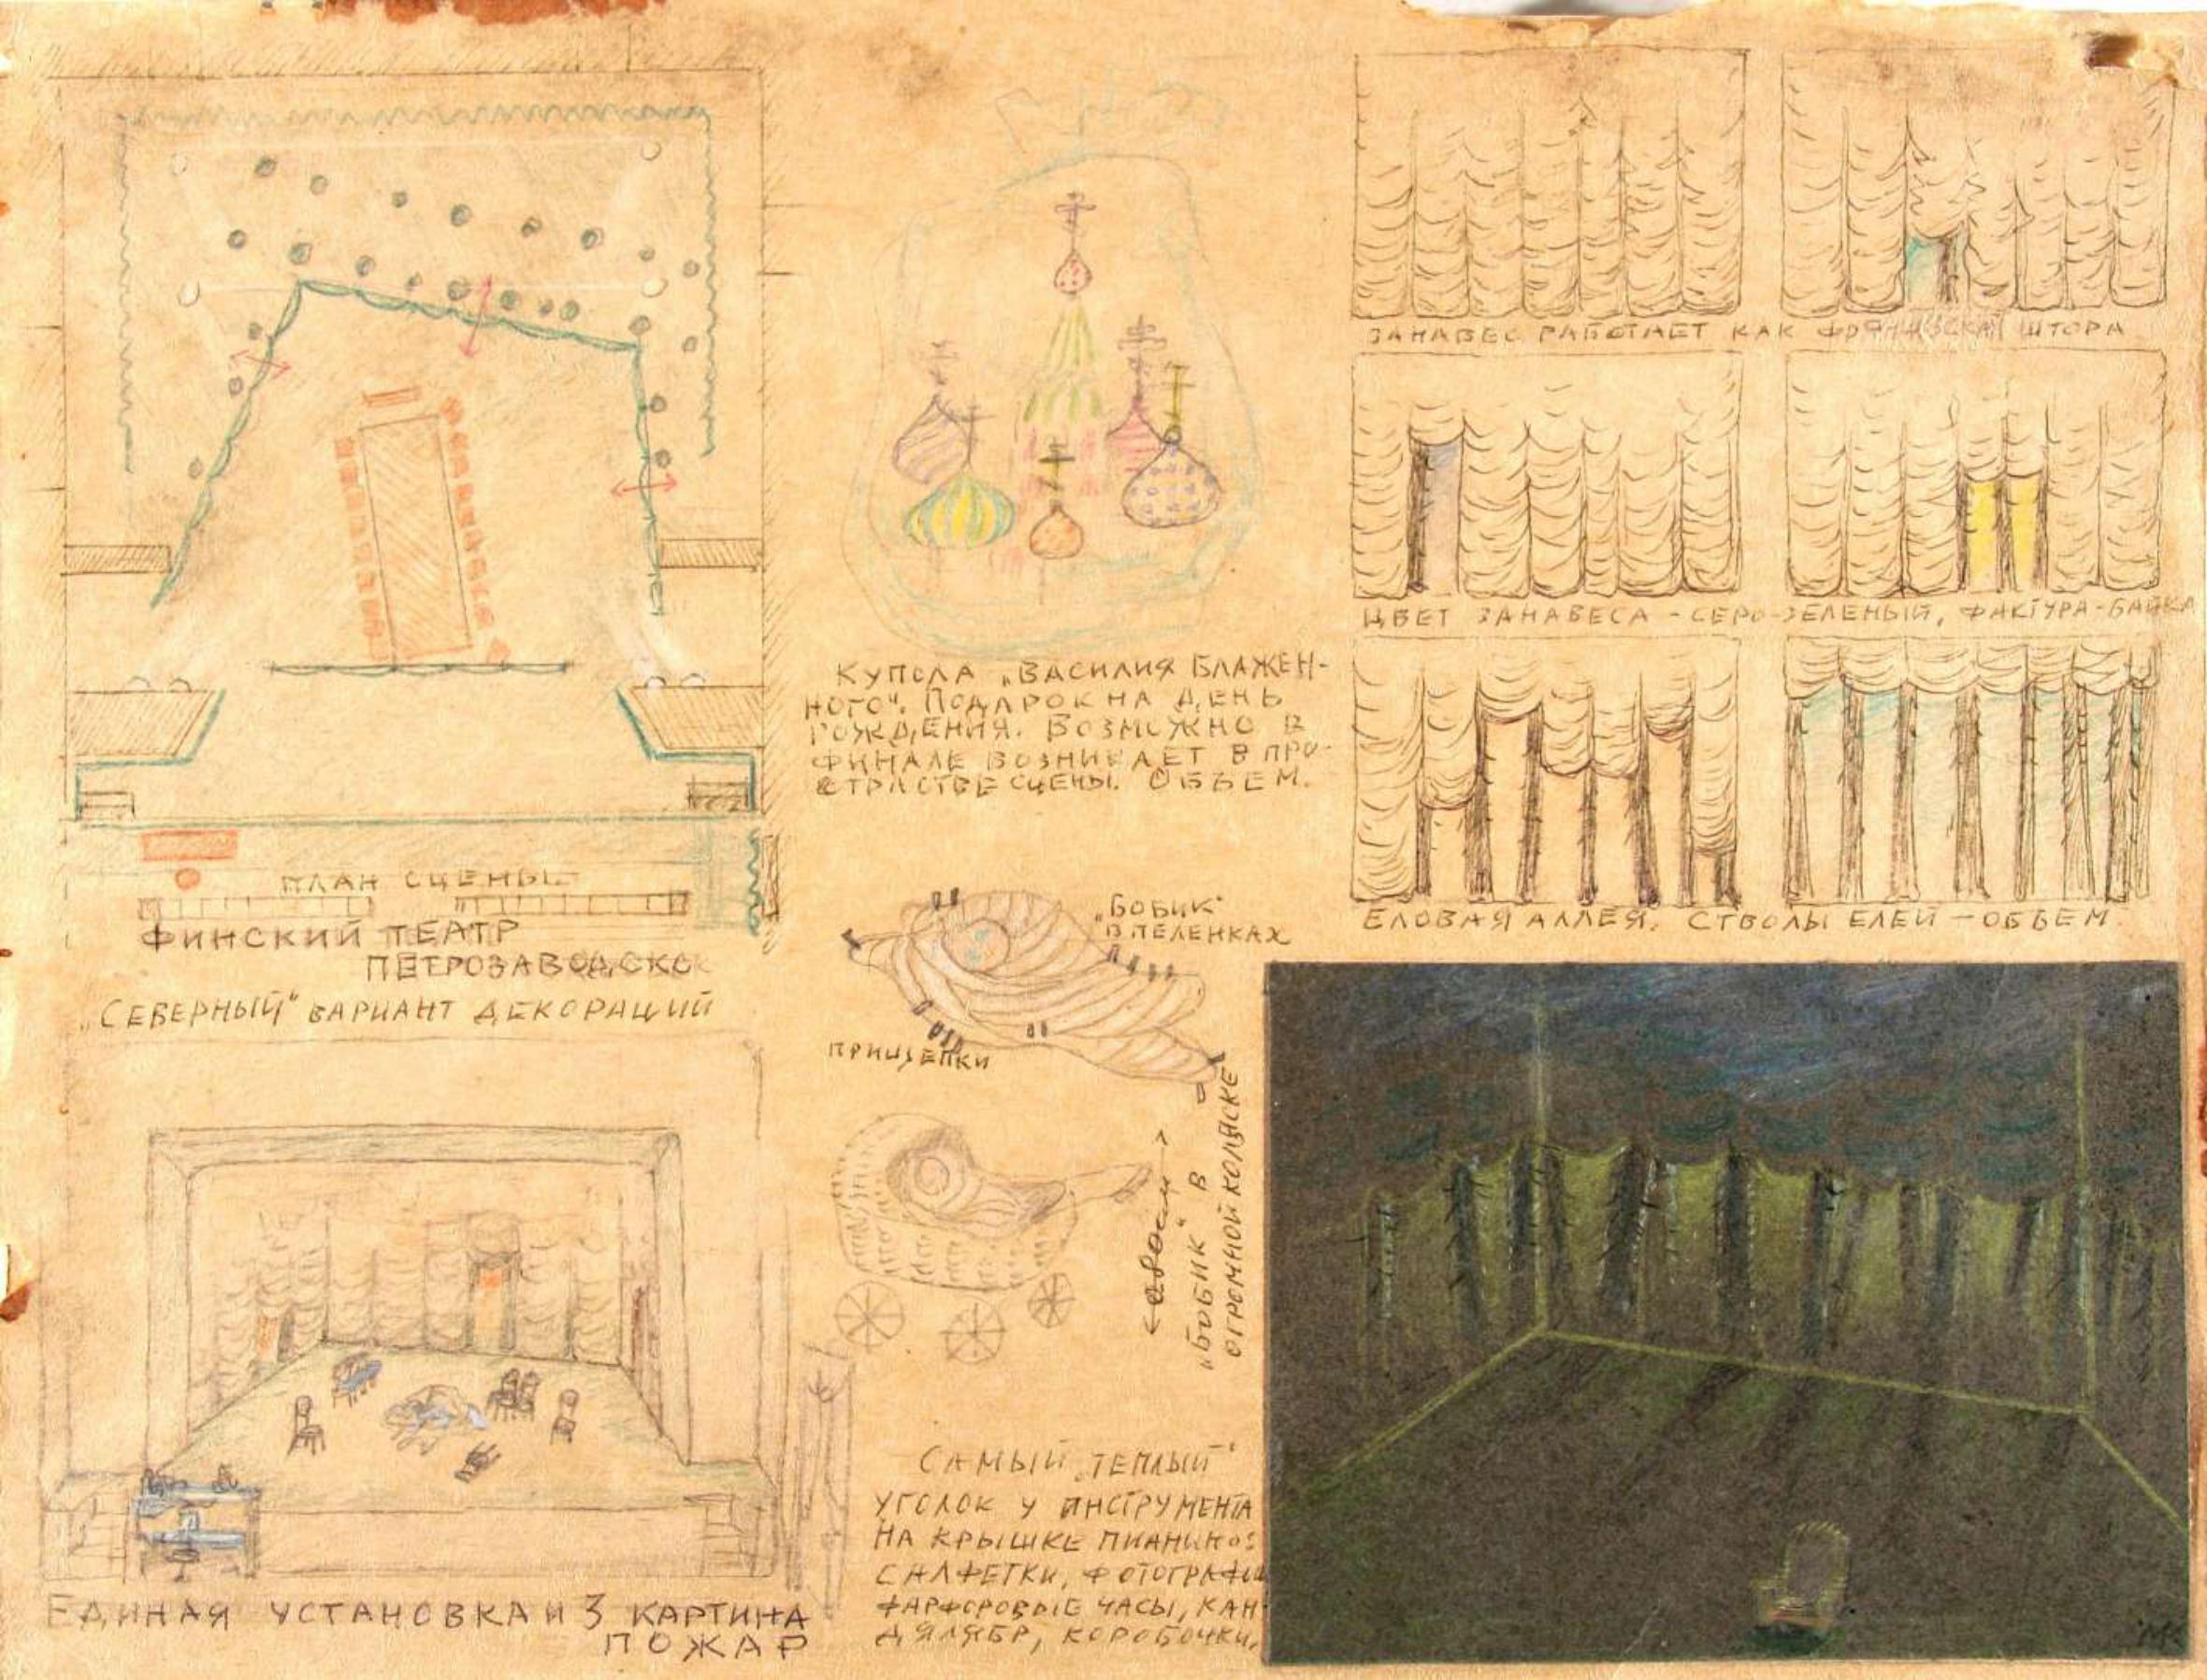 ПЛАН СЦЕНЫ
ФИНСКИЙ ТЕАТР
ПЕТРОЗАВОДСК
„СЕВЕРНЫЙ" ВАРИАНТ ДЕКОРАЦИЙ
ЕДИНАЯ УСТАНОВКА И 3 КАРТИНА
ПОЖАР
КУПОЛА „ВАСИЛИЯ БЛАЖЕН-
НОГО". ПОДАРОК НА ДЕНЬ
РОЖДЕНИЯ. ВОЗМОЖНО В
ФИНАЛЕ ВОЗНИКАЕТ В ПРО-
СТРАСТВЕ СЦЕНЫ. ОБЪЕМ.
„БОБИК"
В ПЕЛЕНКАХ
ПРИЩЕПКИ
„БОБИК" В
ОГРОМНОЙ КОЛЯСКЕ
САМЫЙ „ТЕПЛЫЙ"
УГОЛОК У ИНСТРУМЕНТА
НА КРЫШКЕ ПИАНИНО:
САЛФЕТКИ, ФОТОГРАФИИ
ФАРФОРОВЫЕ ЧАСЫ, КАН-
ДЯЛЯБР, КОРОБОЧКИ,
ЗАНАВЕС РАБОТАЕТ КАК ФРАНЦУЗСКАЯ ШТОРА
ЦВЕТ ЗАНАВЕСА - СЕРО-ЗЕЛЕНЫЙ, ФАКТУРА-БАЙКА
ЕЛОВАЯ АЛЛЕЯ. СТВОЛЫ ЕЛЕЙ - ОБЪЕМ.